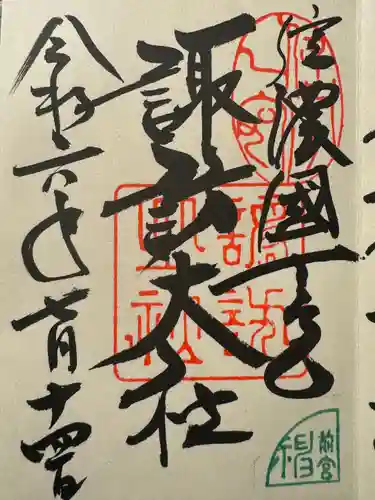 信濃國一之宮
諏訪大社
令和六年七月十四日
諏訪
大社
前宮